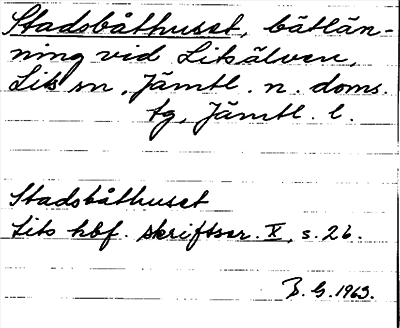 Stadsbåthuset, båtlän-
ning vid Litsälven,
Lits sn, Jämtl. n. doms.
tg, Jämtl. l.
Stadsbåthuset
Lits hbf. skriftser. X, s. 26.
B. G. 1963.